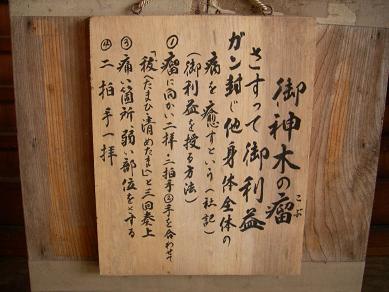 御神木の瘤
こぶ
さすって御利益
ガン封じ他身体全体の
病を癒すという(社記)
(御利益を授る方法)
①瘤に向かい二拝・二拍手②手を合わせ
「祓へたまひ清めたまへ」と三回奏上
③痛い箇所弱い部位をさする
④二拍手一拝